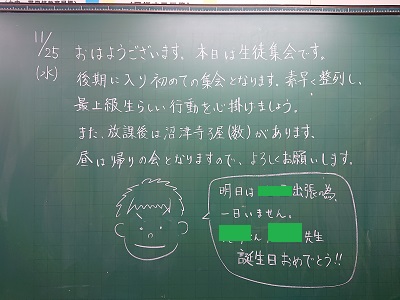 11/25
(水)
おはようございます。本日は生徒集会です。
後期に入り初めての集会となります。素早く整列し、
最上級生らしい行動を心掛けましょう。
また、放課後は沼津寺子屋(数)があります。
昼は帰りの会となりますので、よろしくお願いします。
明日は 出張の為、
一日いません。
さん、 先生
誕生日おめでとう!!